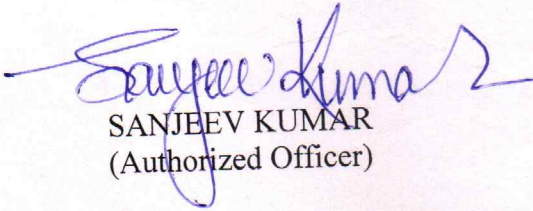 Sanjeev Kumar
SANJEEV KUMAR
(Authorized Officer)